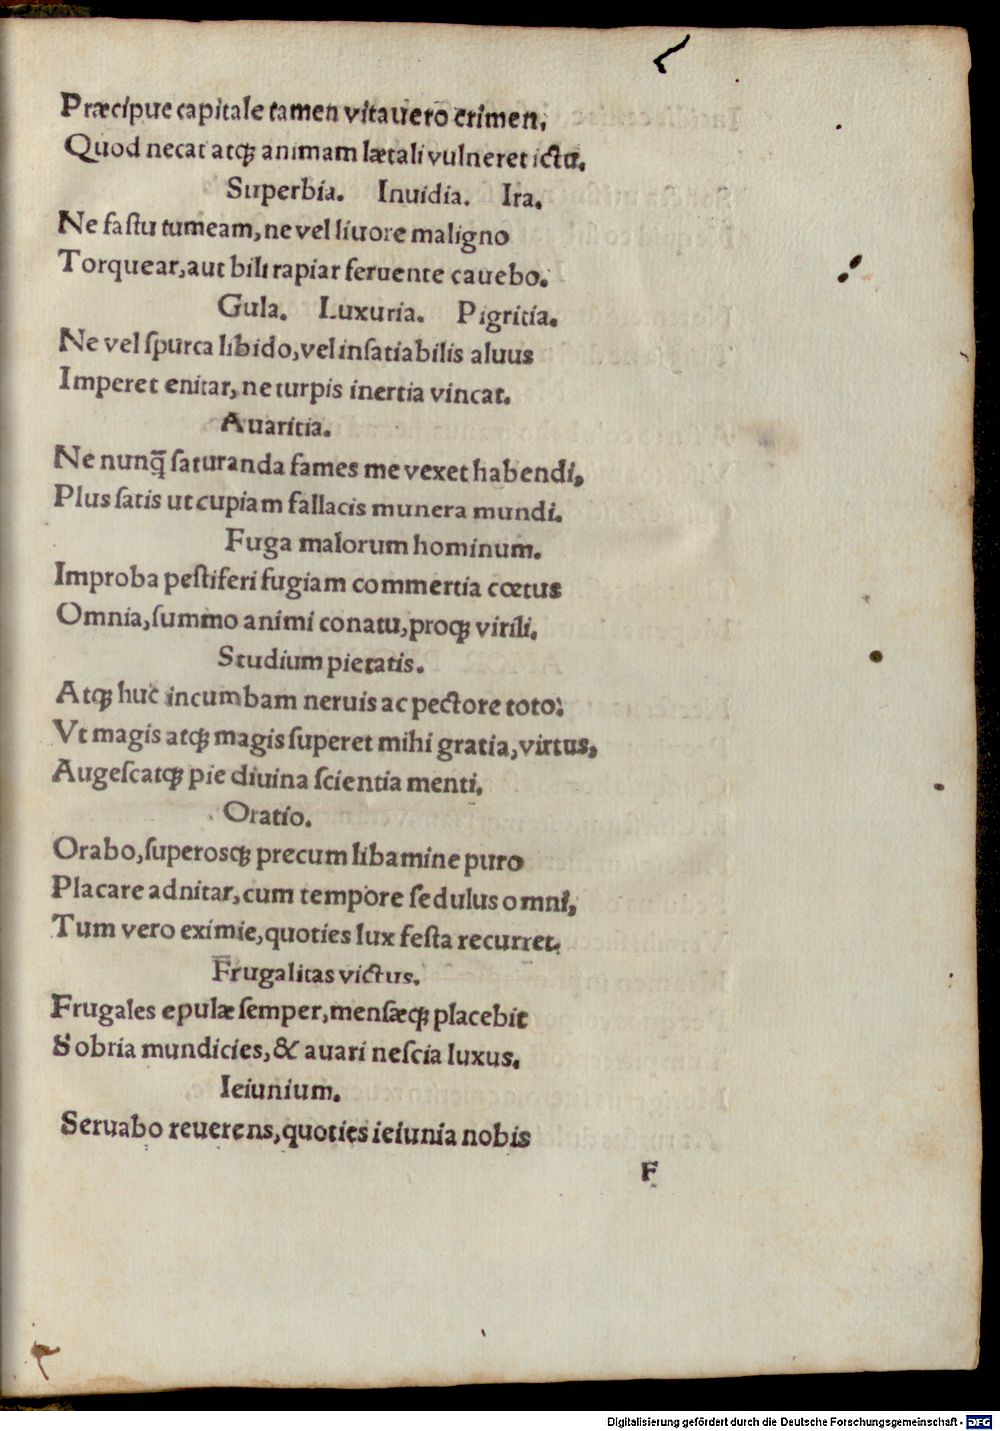 Præcipue capitale tamen vitauero crimen,
Quod necat atqꝫ animam lætali vulneret ictu.
Superbia. Inuidia. Ira.
Ne faſtu tumeam, ne vel liuore maligno
Torquear, aut bili rapiar feruente cauebo.
Gula. Luxuria. Pigritia.
Ne vel ſpurca libido, vel inſatiabilis aluus
Imperet enitar, ne turpis inertia vincat.
Auaritia.
Ne nunq̃ ſaturanda fames me vexet habendi,
Plus ſatis ut cupiam fallacis munera mundi.
Fuga malorum hominum.
Improba peſtiferi fugiam commertia cœtus
Omnia, ſummo animi conatu, proqꝫ virili.
Studium pietatis.
Atqꝫ huc incumbam neruis ac pectore toto:
Vt magis atqꝫ magis ſuperet mihi gratia, virtus,
Augeſcatqꝫ pie diuina ſcientia menti.
Oratio.
Orabo, ſuperosqꝫ precum libamine puro
Placare adnitar, cum tempore ſedulus omni,
Tum vero eximie, quoties lux feſta recurret.
Frugalitas victus.
Frugales epulæ ſemper, menſæqꝫ placebit
Sobria mundicies, & auari neſcia luxus.
Ieiunium.
Seruabo reuerens, quoties ieiunia nobis
F
Digitalisierung gefördert durch die Deutsche Forschungsgemeinschaft - DFG